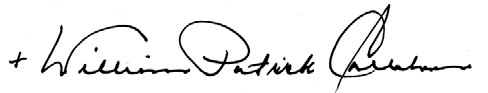 + William Patrick Callahan